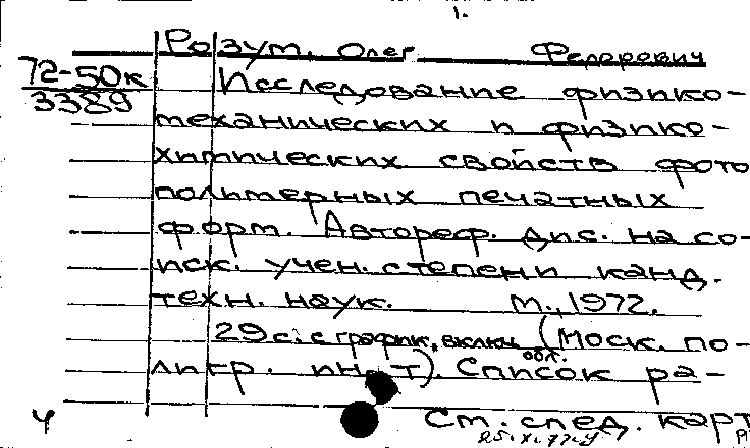 1.
Розум, Олег Федорович
72-50к
3389
Исследование физико-
механических и физико-
химических свойств фото
полимерных печатных
форм. Автореф. дис. на со-
иск. учен. степени канд.
техн. наук. М., 1972.
29 с. с график, включ. обл. (Моск. по-
лигр. ин-т). Список ра-
См. след. карт